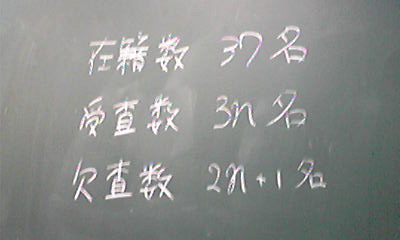 在籍数 37名
受査数 3n名
欠査数 2n+1名